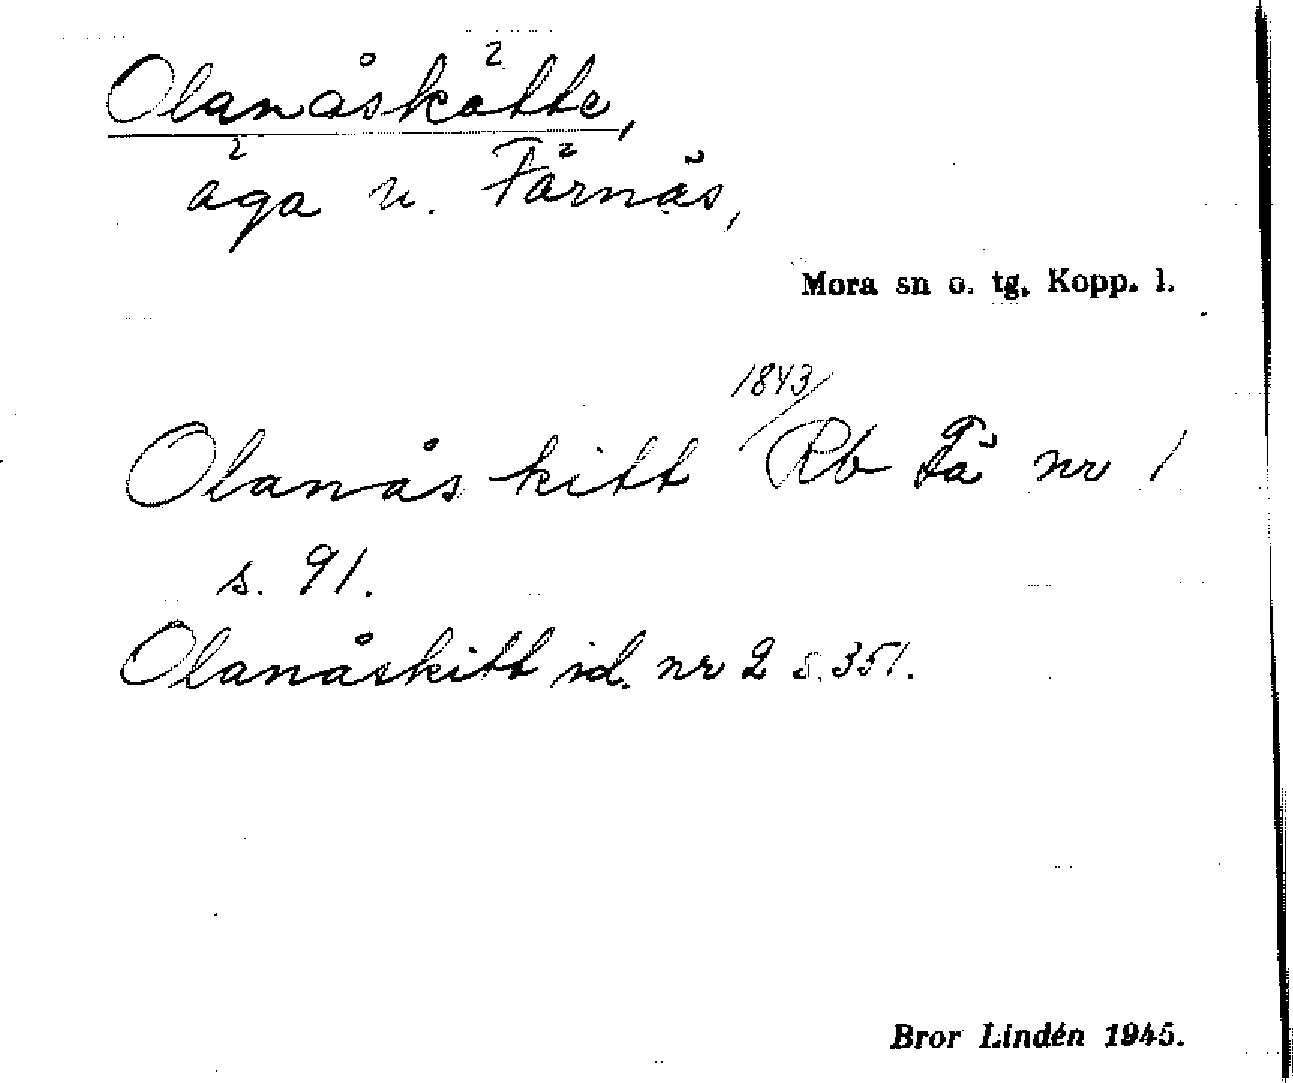 Olanåskätte,
äga u. Färnäs,
Mora sn o. tg. Kopp. l.
Olanås kitt 1843/ Rb Fä nr 1
s. 91.
Olanåskitt id. nr 2 s. 351.
Bror Lindén 1945.